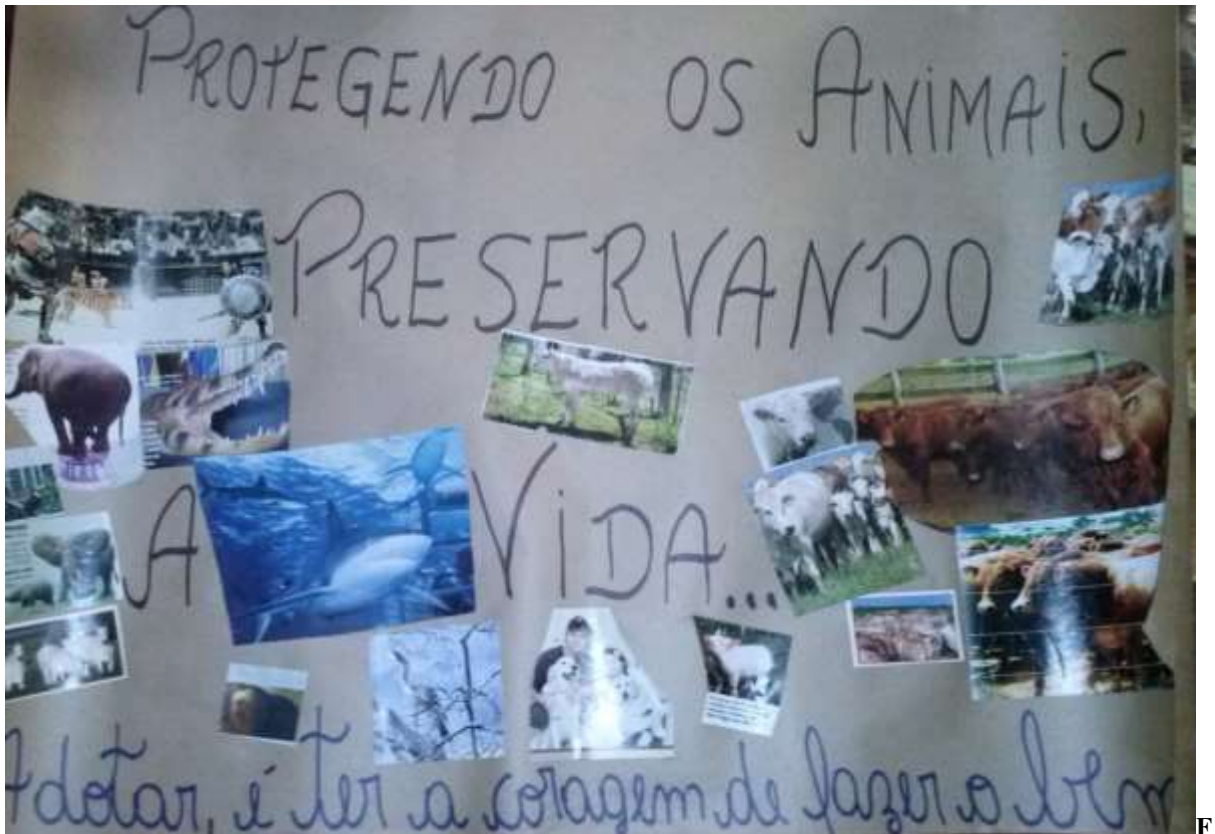 PROTEGENDO OS ANIMAIS,
PRESERVANDO
A VIDA...
Adotar, é ter a coragem de fazer o bem
F